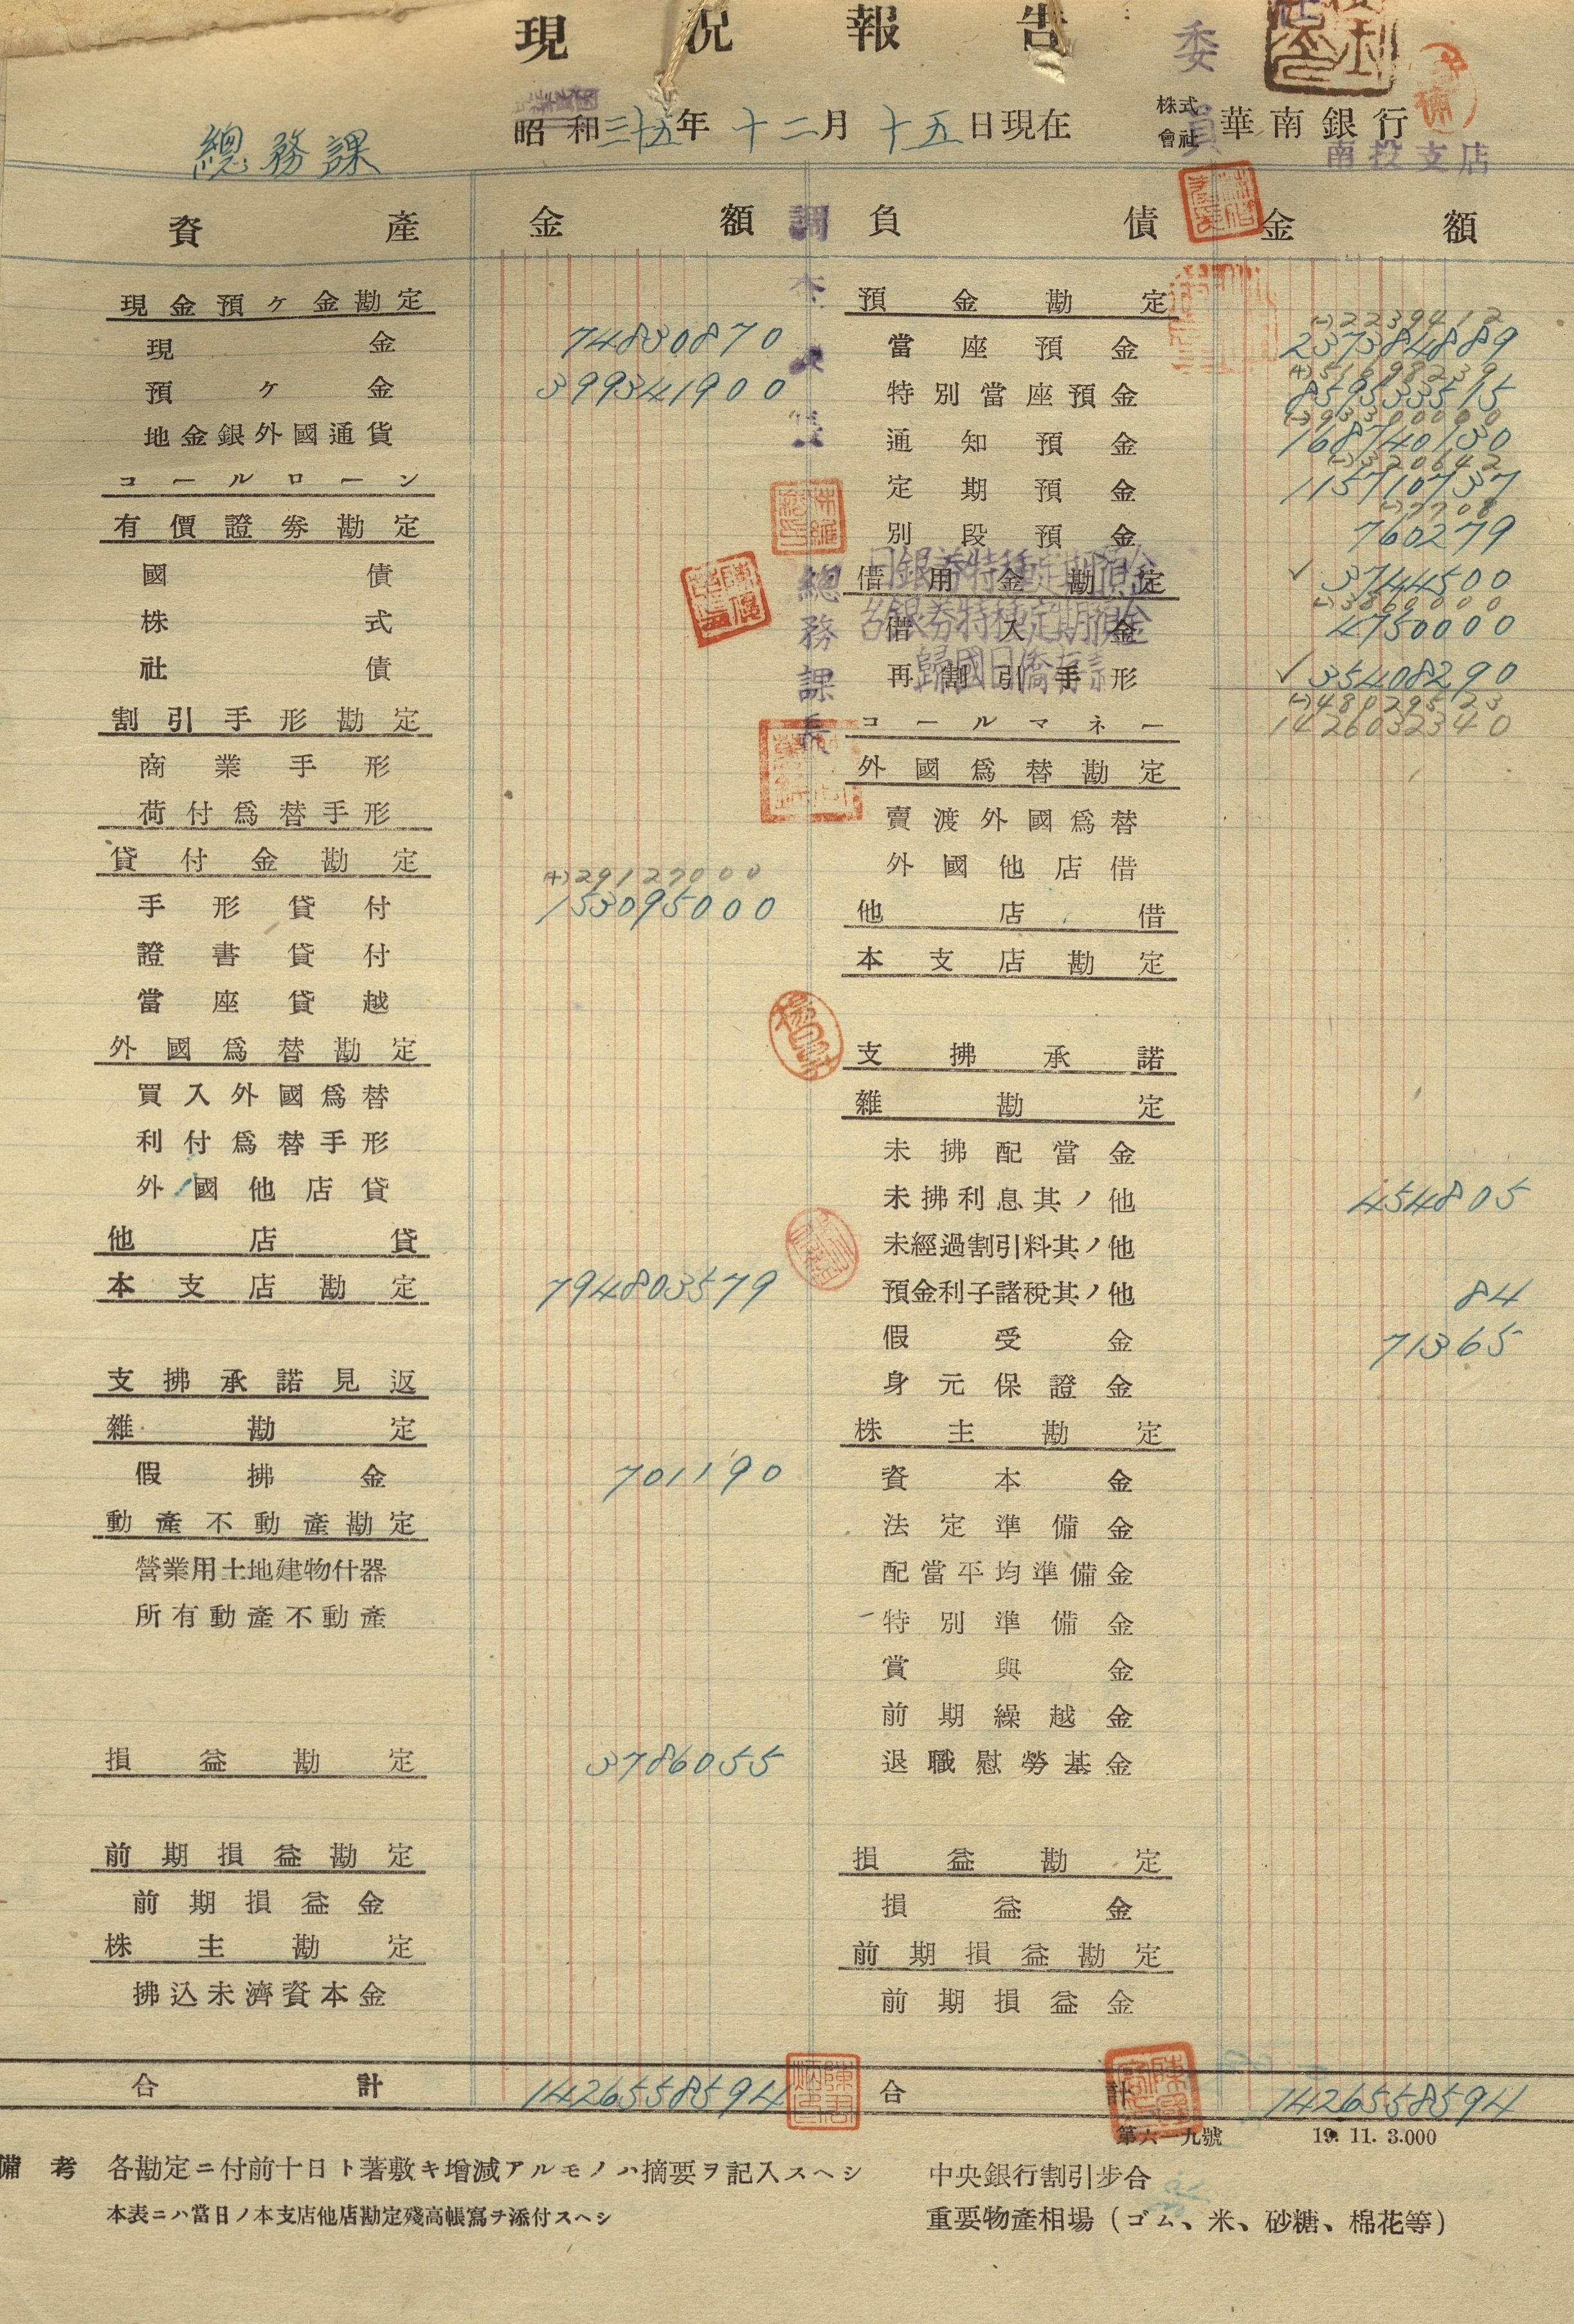 現況報告
昭和三十五年十二月十五日現在
株式會社 華南銀行
南投支店
委員
總務課
資產 金額 負債 金額
現金預ヶ金勘定 預金勘定
(-)2239412
現金 74830870 當座預金 237384889
(+)51698239
預ヶ金 399341900 特別當座預金 859533515
(-)93300000
地金銀外國通貨 通知預金 168740130
(-)3320642
コールローン 定期預金 115710737
(-)7708
有價證券勘定 別段預金 760279
日銀券特種定期預金
國債 借用金勘定 ✓3744500
(-)3860000
台銀券特種定期預金
株式 借入金 4750000
歸國日僑存款
社債 再割引手形 ✓35408290
(-)48029523
割引手形勘定 コールマネー 1426032340
商業手形 外國爲替勘定
荷付爲替手形 賣渡外國爲替
貸付金勘定 外國他店借
(+)29127000
手形貸付 153095000 他店借
證書貸付 本支店勘定
當座貸越
外國爲替勘定 支拂承諾
買入外國爲替 雜勘定
利付爲替手形 未拂配當金
外國他店貸 未拂利息其ノ他 454805
他店貸 未經過割引料其ノ他
本支店勘定 794803579 預金利子諸稅其ノ他 84
假受金 71365
支拂承諾見返 身元保證金
雜勘定 株主勘定
假拂金 701190 資本金
動產不動產勘定 法定準備金
營業用土地建物什器 配當平均準備金
所有動產不動產 特別準備金
賞與金
前期繰越金
損益勘定 3786055 退職慰勞基金
前期損益勘定 損益勘定
前期損益金 損益金
株主勘定 前期損益勘定
拂込未濟資本金 前期損益金
合計 1426558594 合計 1426558594
第六一九號 19. 11. 3.000
備考 各勘定ニ付前十日ト著敷キ增減アルモノハ摘要ヲ記入スヘシ 中央銀行割引步合
本表ニハ當日ノ本支店他店勘定殘高帳寫ヲ添付スヘシ 重要物產相場(ゴム、米、砂糖、棉花等)
總務課長